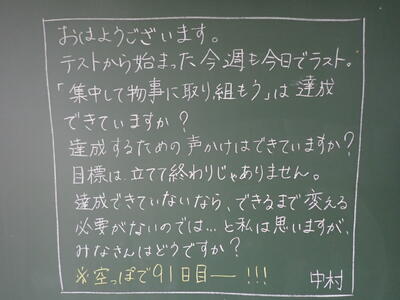 おはようございます。
テストから始まった今週も今日でラスト。
「集中して物事に取り組もう」は達成
できていますか?
達成するための声かけはできていますか?
目標は立てて終わりじゃありません。
達成できていないなら、できるまで変える
必要がないのでは…と私は思いますが、
みなさんはどうですか?
※空っぽで91日目ー!!! 中村